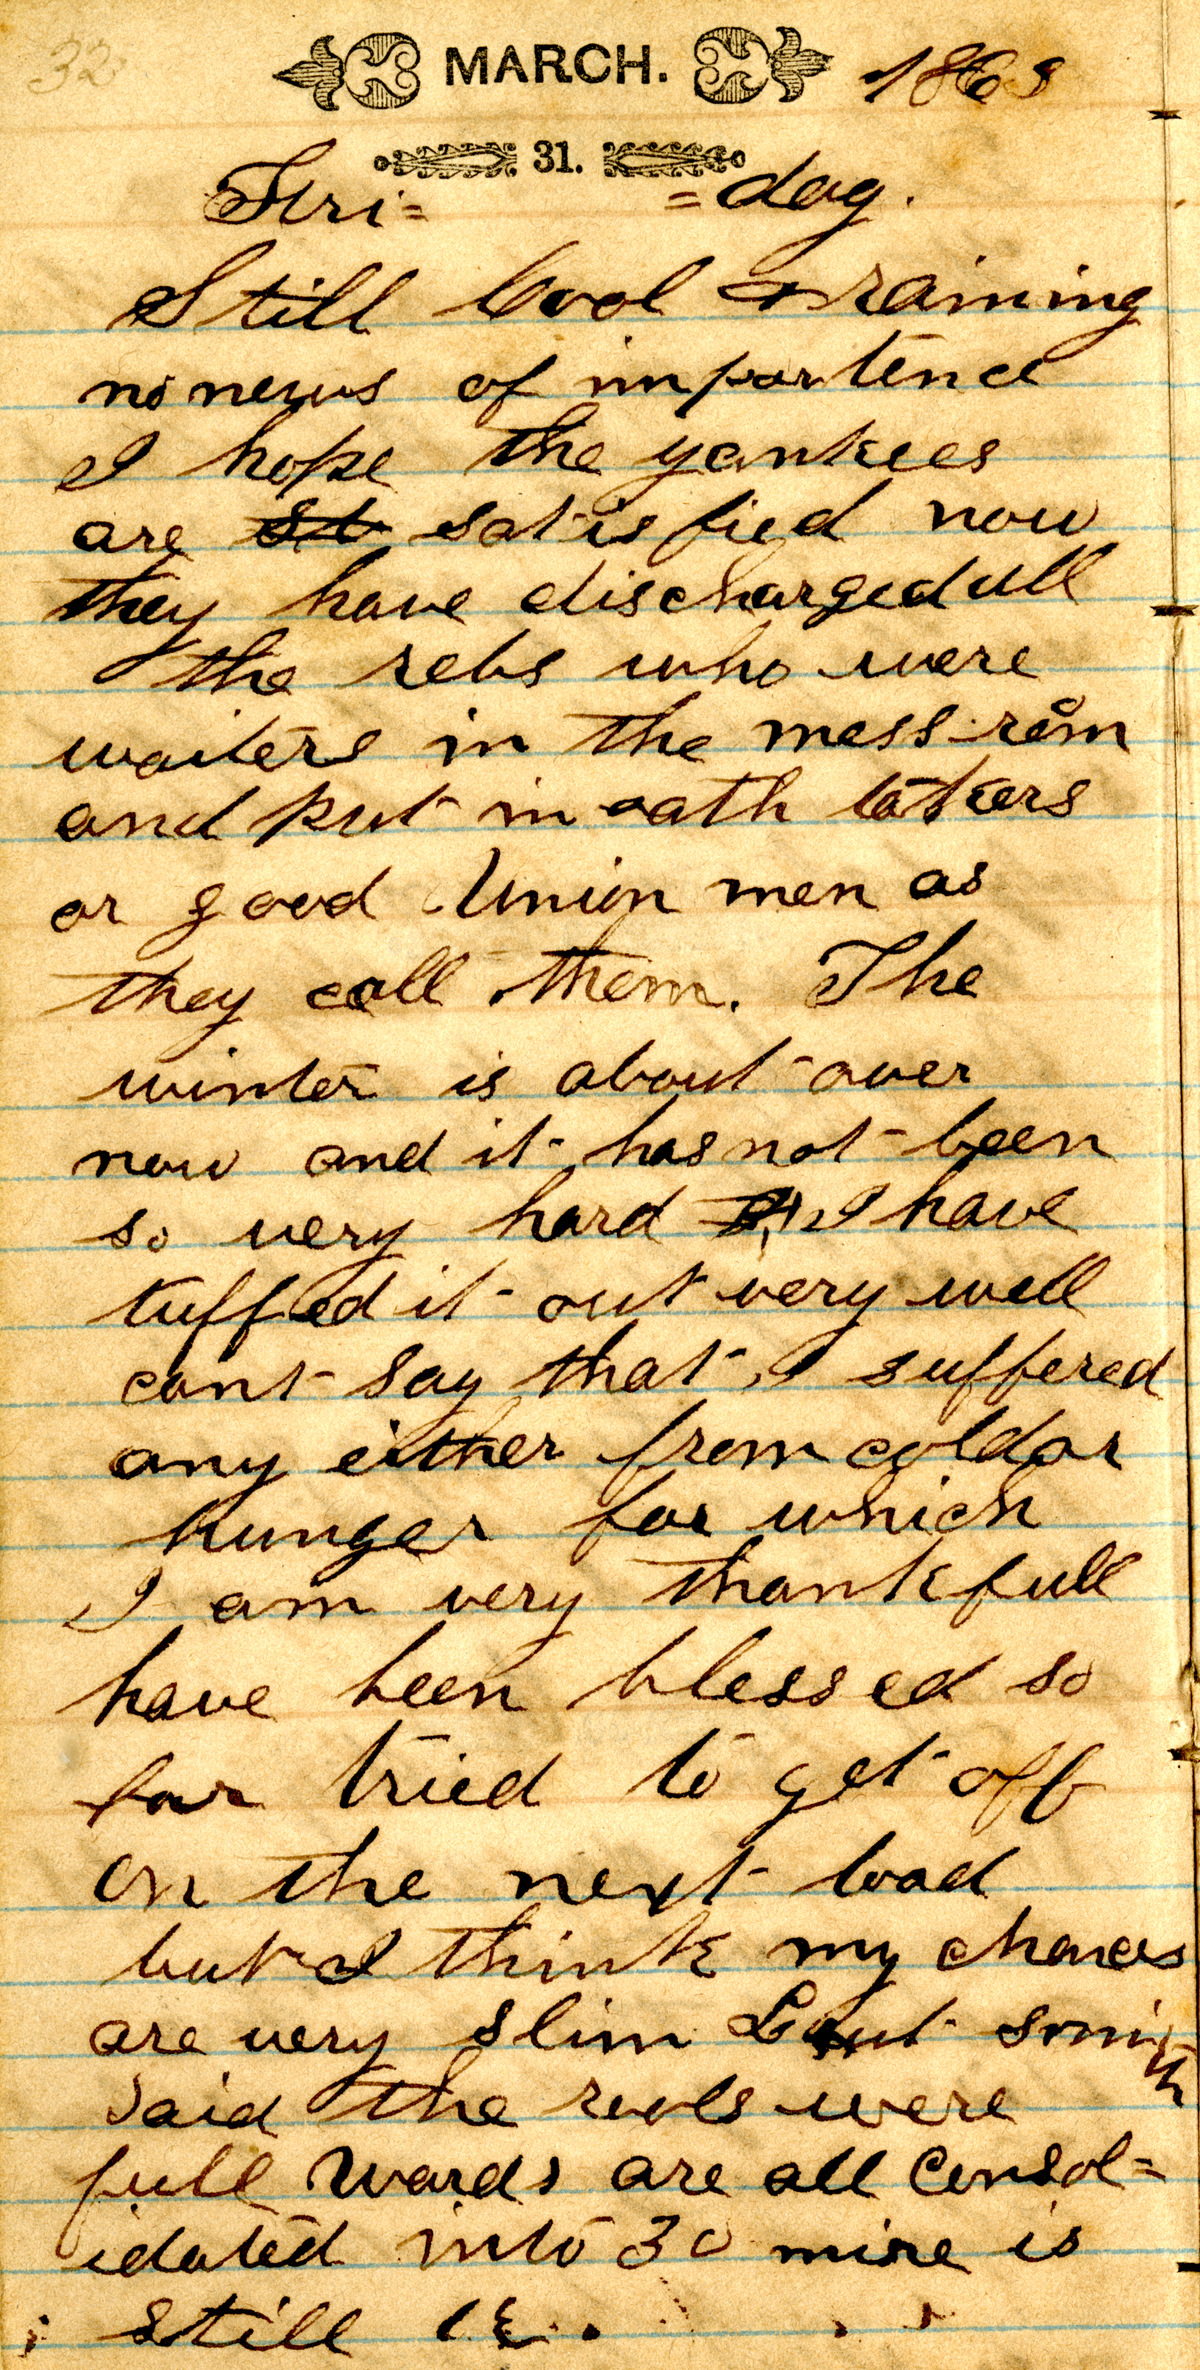 32
MARCH. 186
31.
Fri= =day.
Still cool & raining
no news of importence
I hope the yankees
are st satisfied now
they have discharged all
the rebs who were
waiters in the mess room
and put in oath takers
or good Union men as
they call them. The
winter is about over
now and it has not been
so very hard I have
tuffed it out very well
cant say that I suffered
any either from cold or
hunger for which
I am very thankfull
have been blessed so
far tried to get off
on the next load
but I think my chances
are very slim Lieut Smith
Said the rools were
full Wards are all consol=
idated into 30 mine is
still